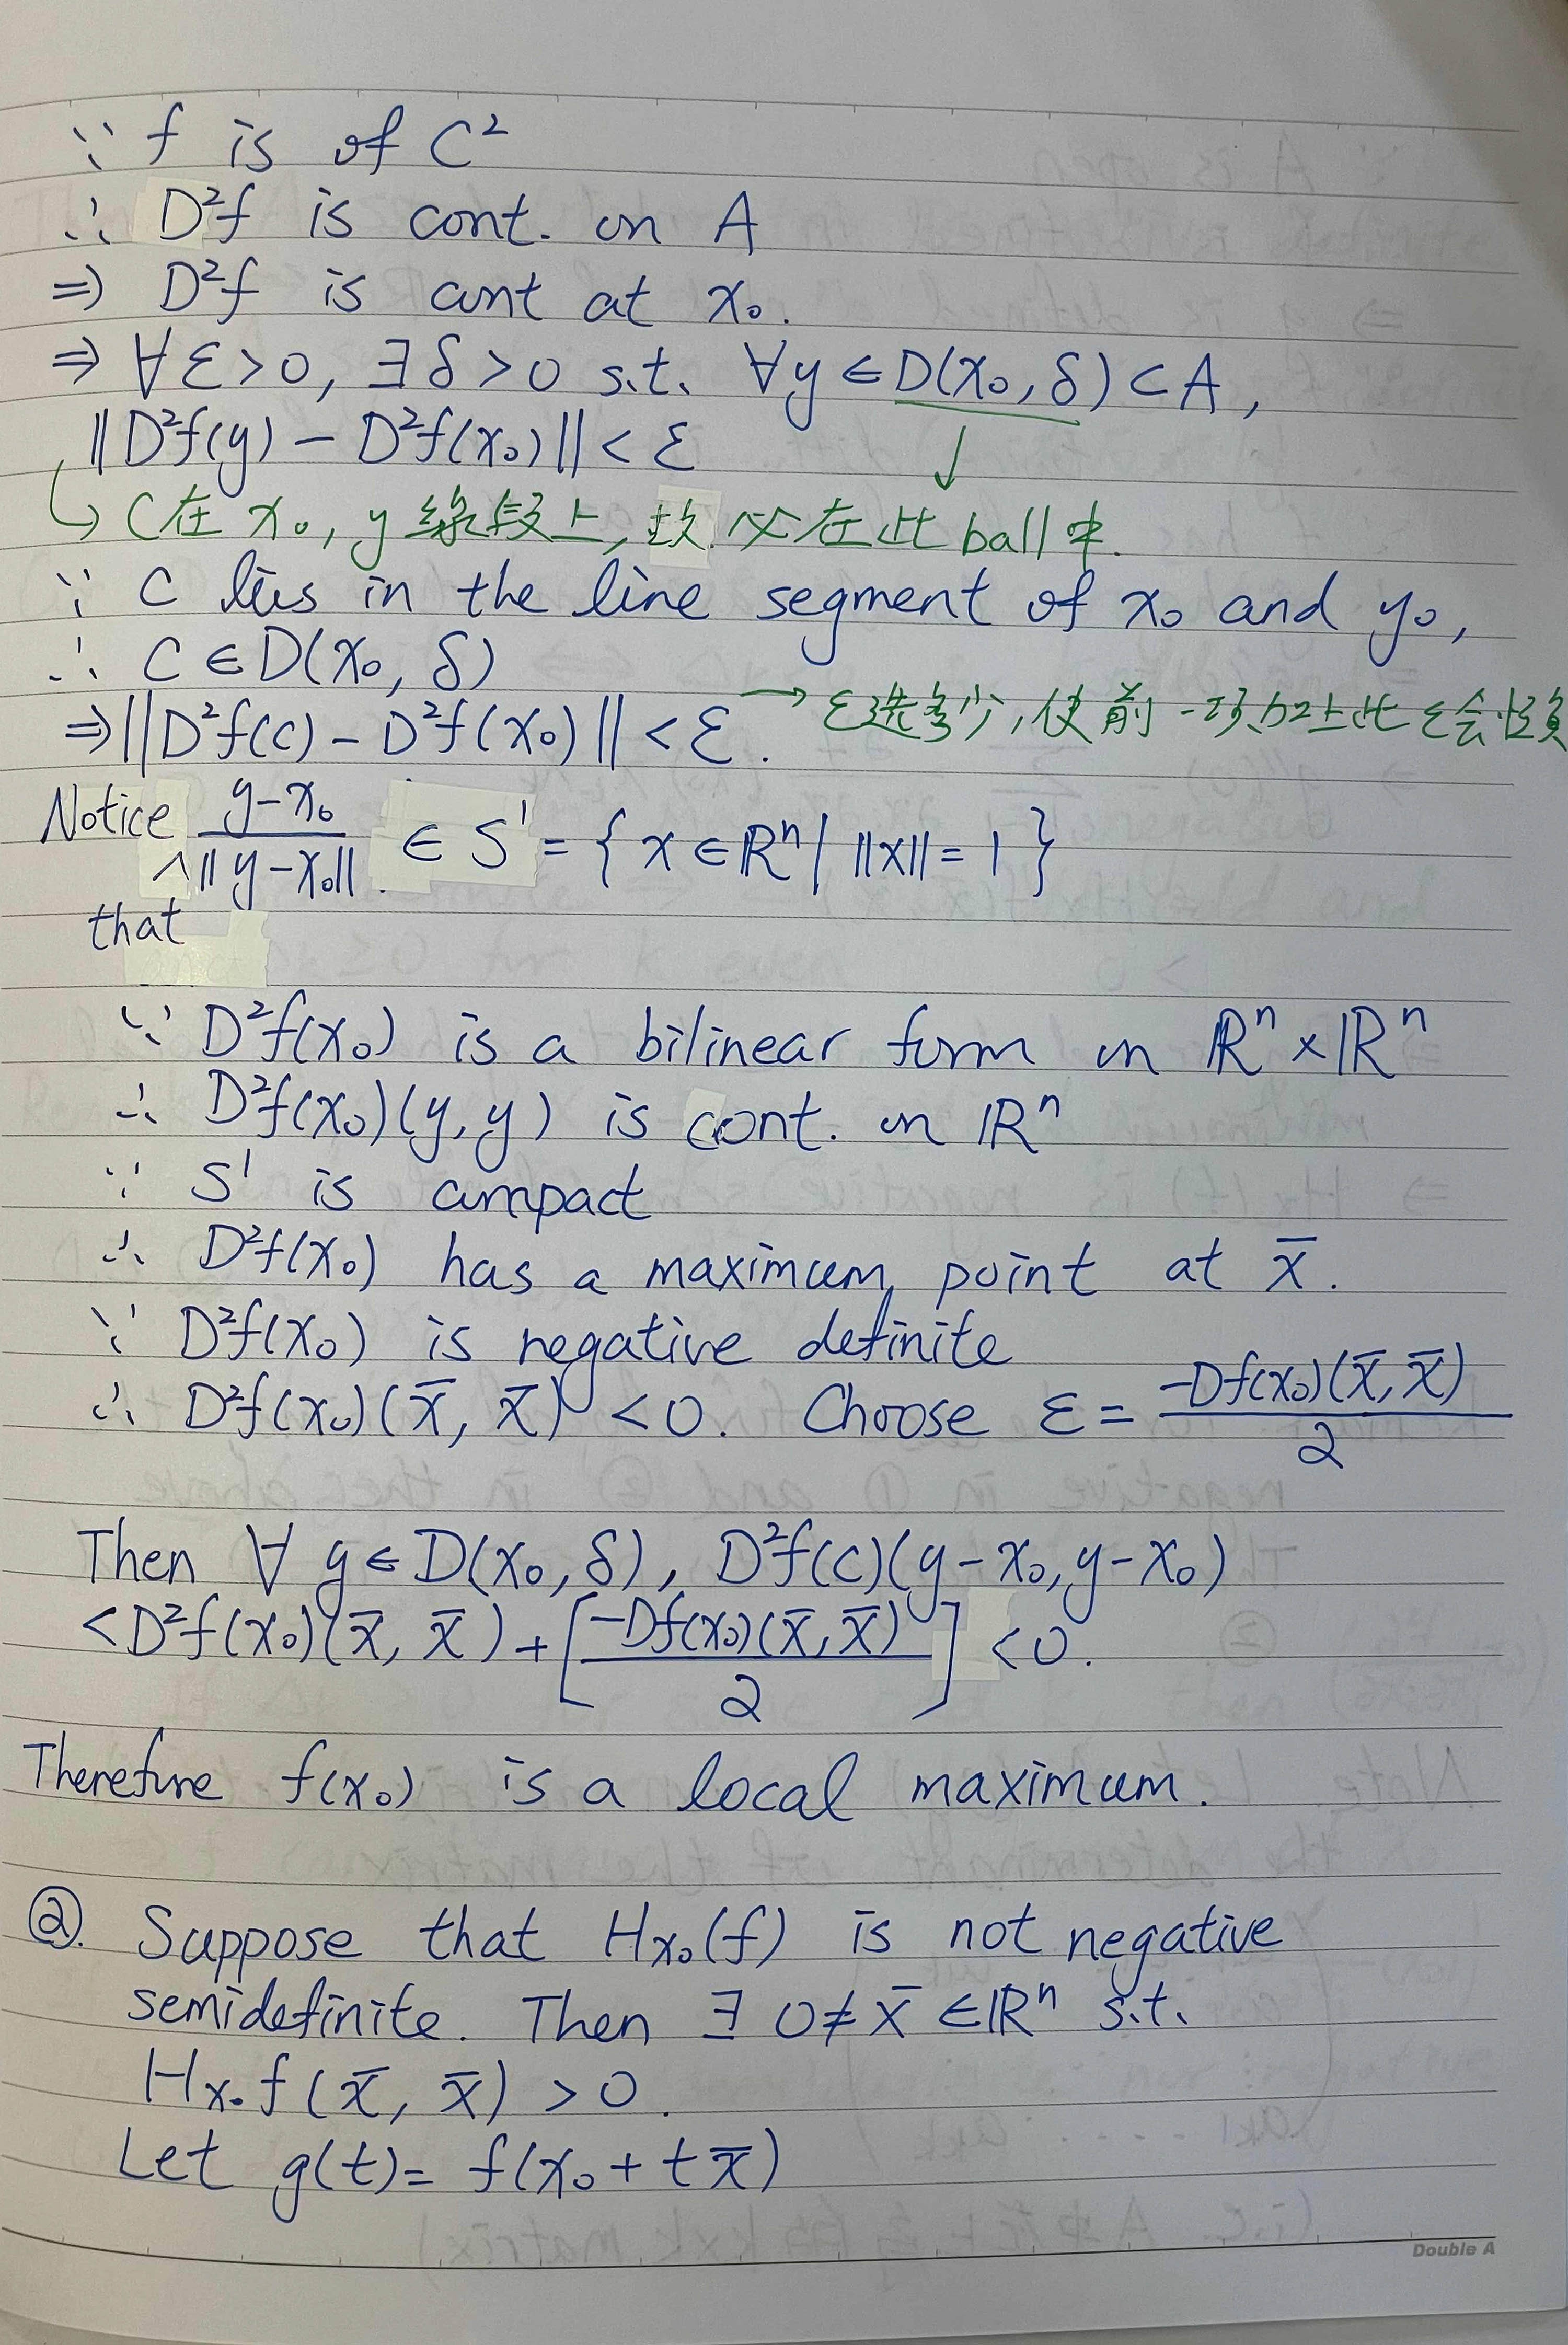 ∵ f is of C²
∴ D²f is cont. on A
⇒ D²f is cont at x₀.
⇒ ∀ε>0, ∃δ>0 s.t. ∀y∈D(x₀, δ)⊂A,
‖D²f(y) − D²f(x₀)‖<ε
↳ C在 x₀, y 線段上, 故必在此 ball 中.
∵ C lies in the line segment of x₀ and y₀,
∴ C∈D(x₀, δ)
⇒‖D²f(c) − D²f(x₀)‖<ε. → ε选多少, 使前一项加上此 ε会恒負
Notice that (y−x₀)/‖y−x₀‖ ∈ S¹ = { x∈ℝⁿ | ‖x‖=1 }
∵ D²f(x₀) is a bilinear form on ℝⁿ×ℝⁿ
∴ D²f(x₀)(y,y) is cont. on ℝⁿ
∵ S¹ is compact
∴ D²f(x₀) has a maximum point at x̄.
∵ D²f(x₀) is negative definite
∴ D²f(x₀)(x̄, x̄) <0. Choose ε = −Df(x₀)(x̄, x̄)/2
Then ∀ y∈D(x₀, δ), D²f(c)(y−x₀, y−x₀)
<D²f(x₀)(x̄, x̄)+[−Df(x₀)(x̄, x̄)/2] <0.
Therefore f(x₀) is a local maximum.
②. Suppose that Hx₀(f) is not negative
semidefinite. Then ∃ 0≠x̄∈ℝⁿ s.t.
Hx₀f(x̄, x̄) >0.
Let g(t)= f(x₀+tx̄)
Double A